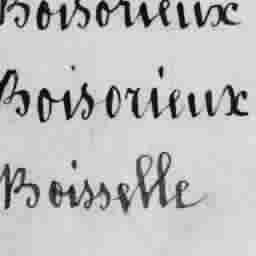 Boisorieux
Boisorieux
Boisselle